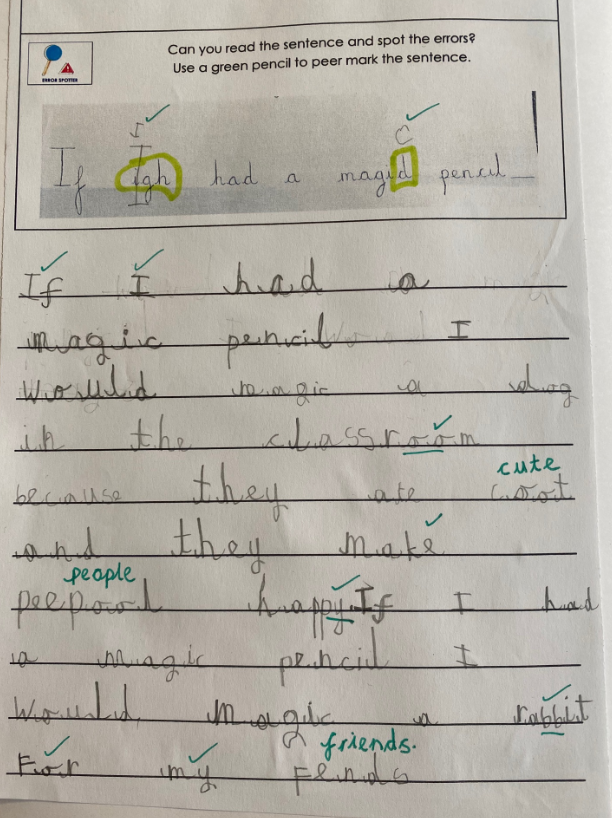 Can you read the sentence and spot the errors?
Use a green pencil to peer mark the sentence.
ERROR SPOTTER
I C
If igh had a magid pencil
If I had a
magic pencil I
would magic a dog
in the classroom
cute
because they are coot
and they make
people
peepool happy. If I had
a magic pencil I
would magic a rabbit
friends.
For my Fends